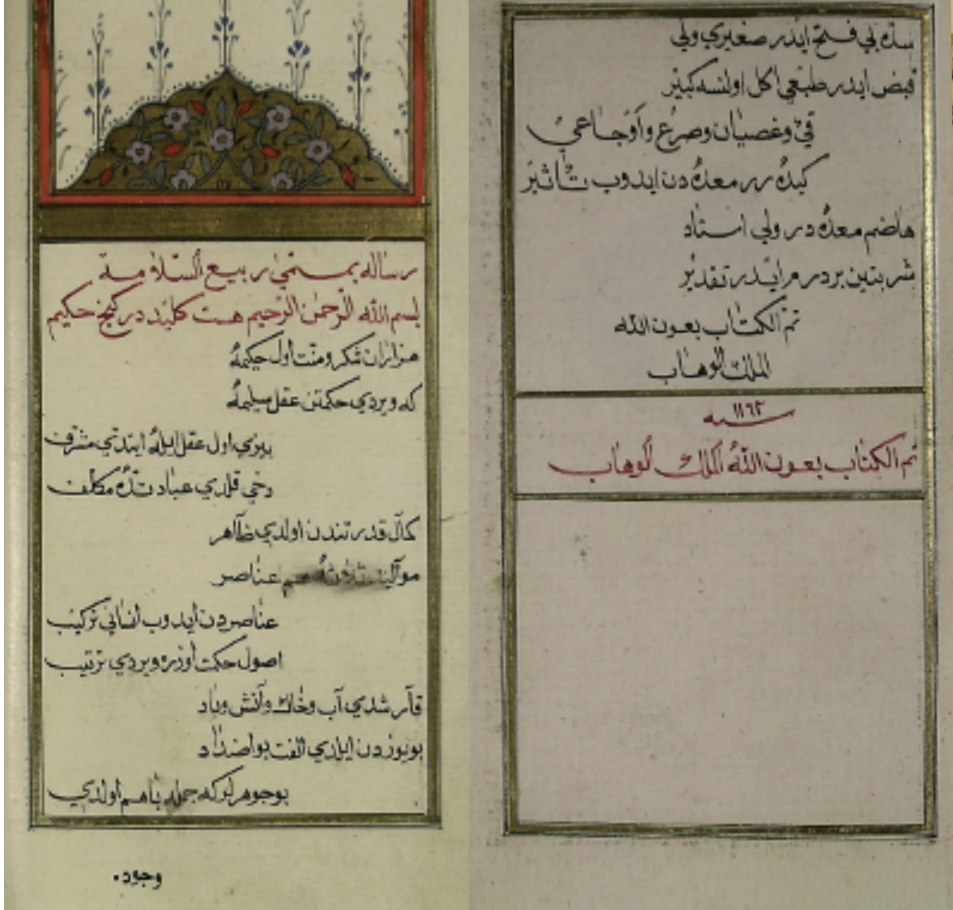 رساله بمسمى ربيع السلامة
بسم الله الرحمن الرحيم هست كليد در كنج حكيم
هزاران شكر ومنت اول حكيمه
كه ويردي حكمتن عقل سليمه
بيزي اول عقل ايله ايتدي مشرف
دخي قلدي عبادتده مكلف
كمال قدرتندن اولدي ظاهر
مواليد ثلاثه هم عناصر
عناصردن ايدوب انساني تركيب
اصول حكمت اوزره ويردي ترتيب
قارشدي آب وخاك وآتش وباد
بويوزدن ايلدي الفت بو اضداد
بو جوهرلر كه جمله باهم اولدي
وجود
سده يي فتح ايدر صغيري ولي
قبض ايدر طبعي اكل اولنسه كبير
قئ وغصيان وصرع واوجاعي
كبده رر معده دن ايدوب تأثير
هاضم معده در ولي استاد
شربتين بردرم ايدر تقدير
تم الكتاب بعون الله
الملك الوهاب
سنه ١١٦٢
تم الكتاب بعون الله الملك الوهاب